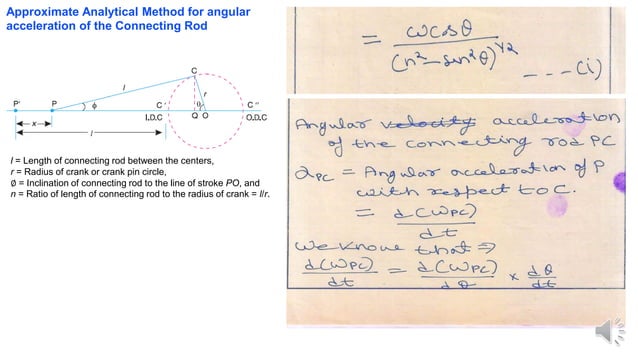 Approximate Analytical Method for angular
acceleration of the Connecting Rod
C
l
r
P'
P
ϕ
C'
θ
C''
I,D,C
Q O
O,D,C
x
l
l = Length of connecting rod between the centers,
r = Radius of crank or crank pin circle,
∅ = Inclination of connecting rod to the line of stroke PO, and
n = Ratio of length of connecting rod to the radius of crank = l/r.
= ωcosθ / (n² − sin²θ)^1/2 - - - (i)
Angular velocity acceleration
of the connecting rod PC
αPC = Angular acceleration of P
with respect to C.
= d(ωPC) / dt
we know that ⇒
d(ωPC) / dt = d(ωPC) / dθ × dθ / dt